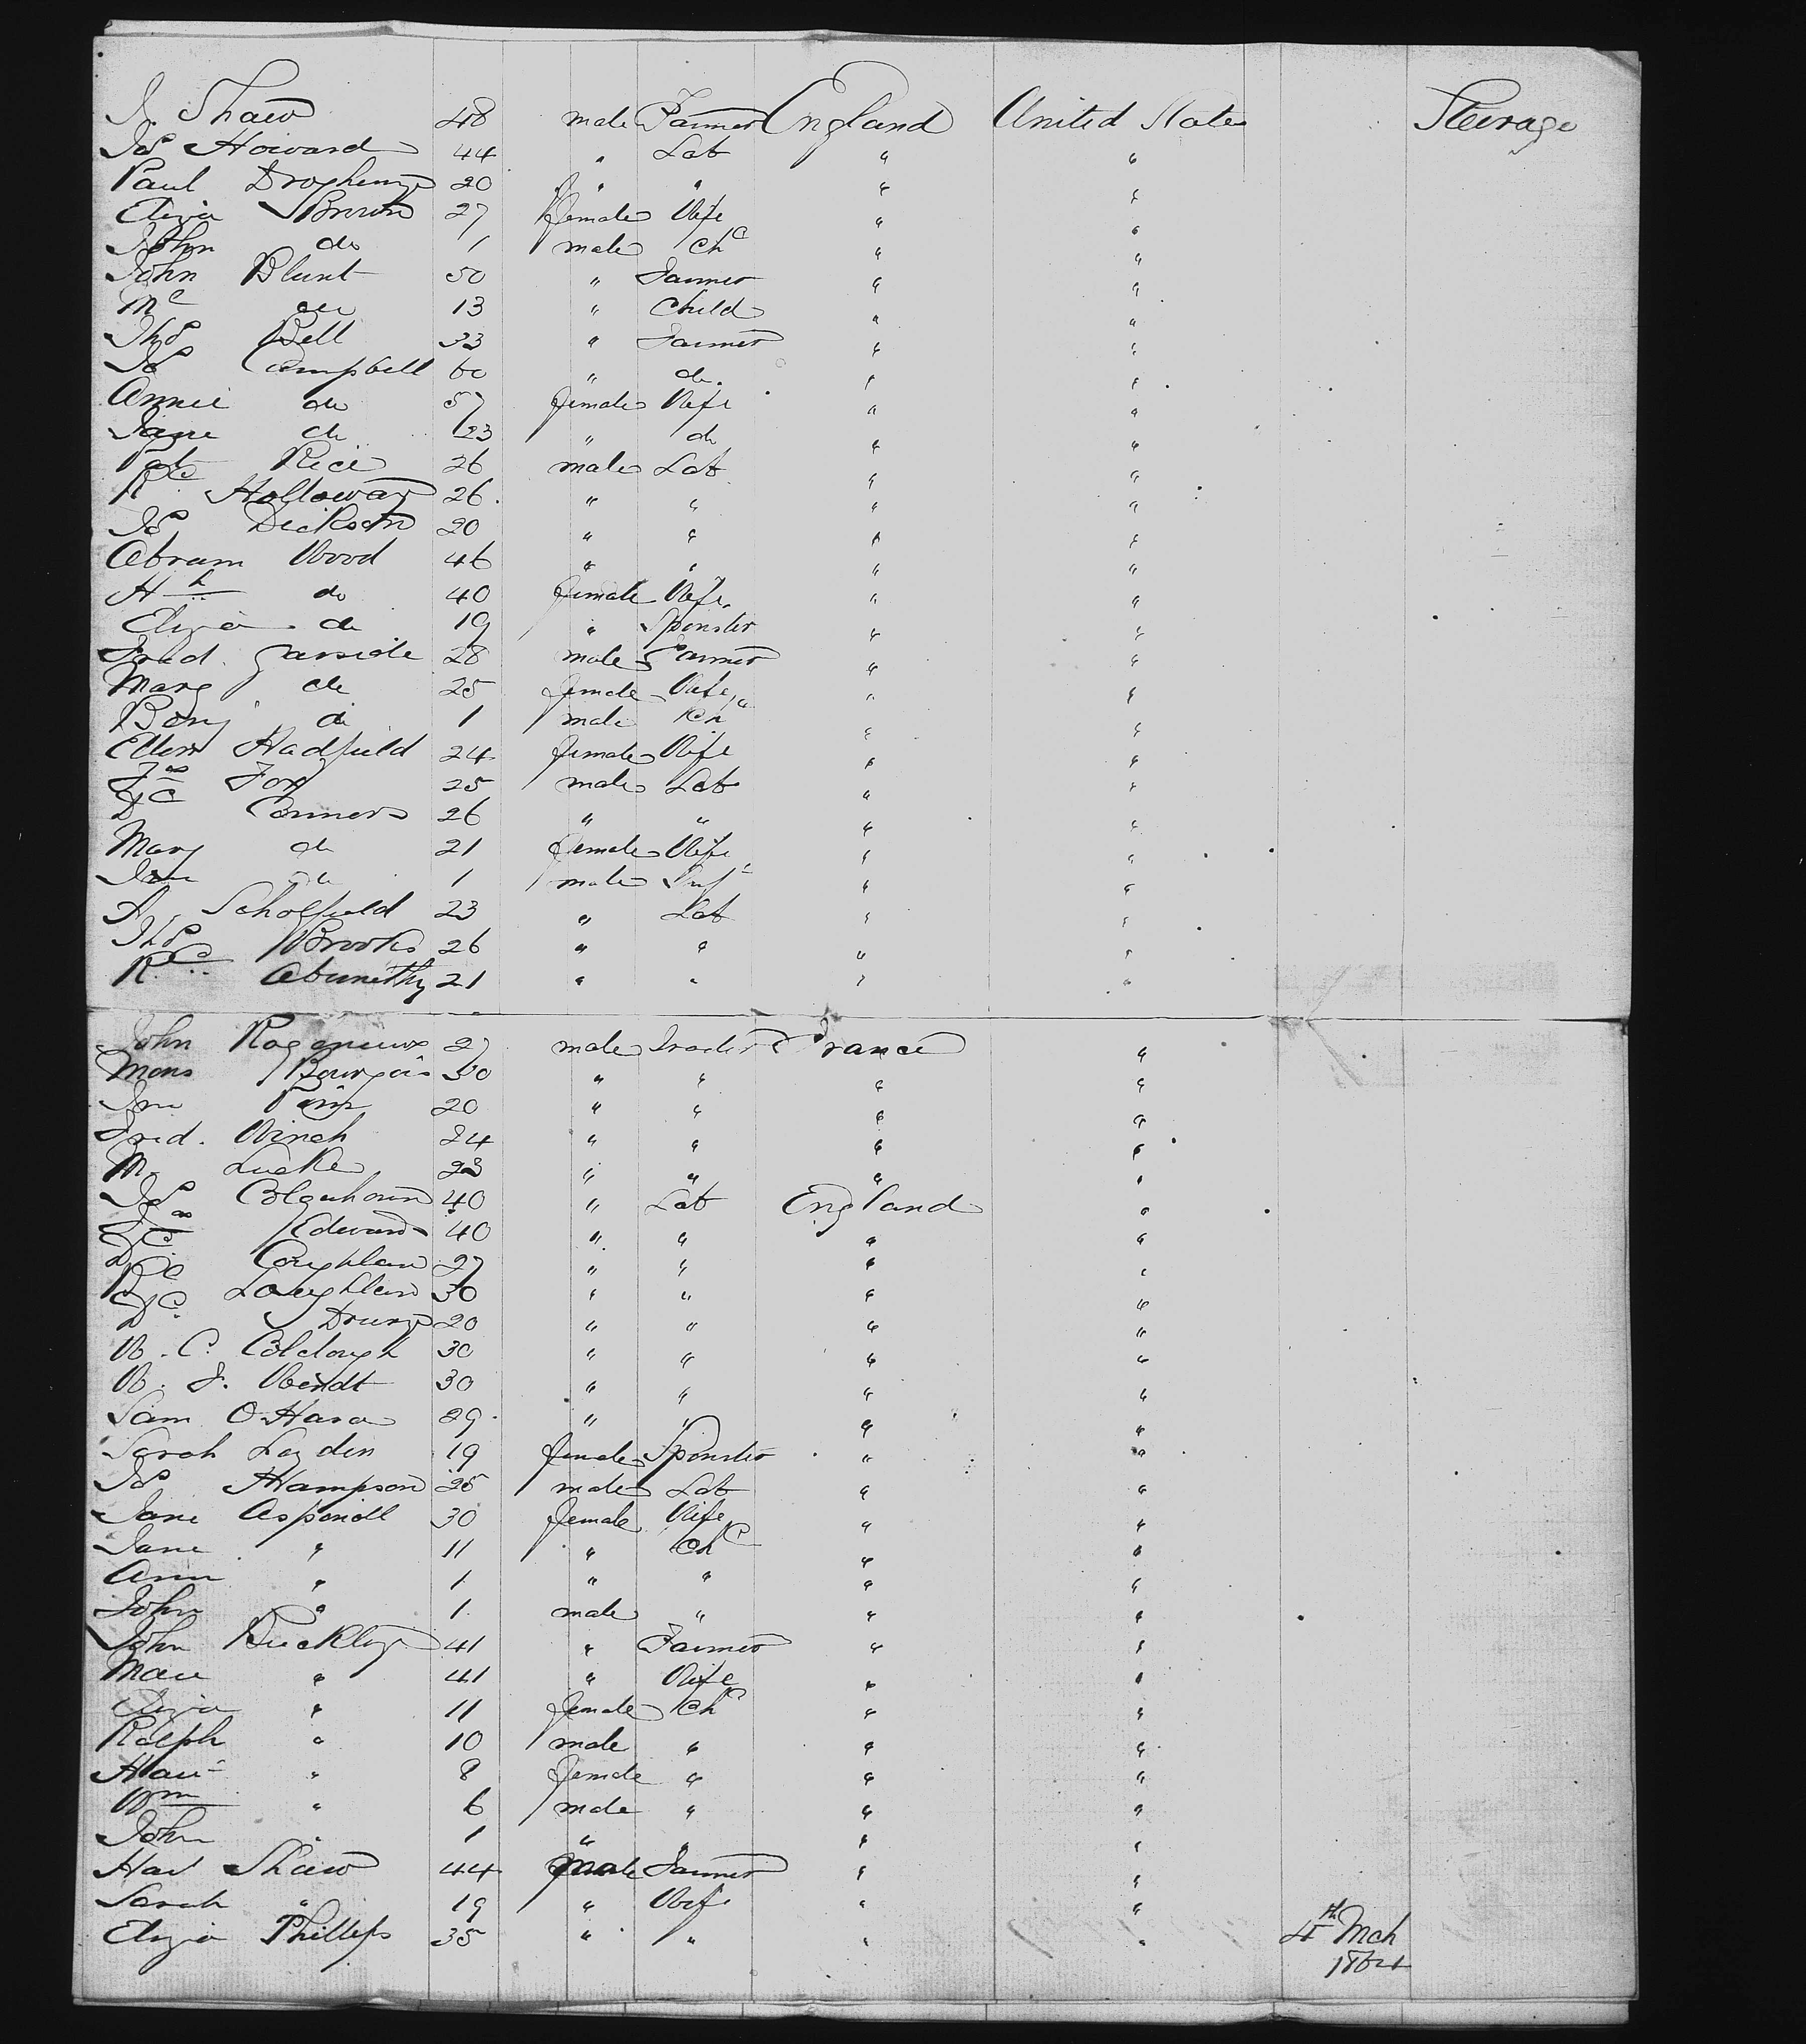 J. Shaw 48 male Farmer England United States Steerage
Jas Howard 44 " Lab " "
Paul 20 " " " "
Eliza Brown 27 female Wife " "
John do 1 male Chd " "
John Blunt 50 " Farmer " "
do 13 " Child " "
Thos Bell 33 " Farmer " "
Jas Campbell 60 " do. " "
Annie do 57 female Wife " "
Jane do 23 " do " "
Pat Rice 26 male Lab " "
Rd Holloway 26 " " " "
Jas Dickson 20 " " " "
Abram Wood 46 " " " "
Hh do 40 female Wife " "
Eliza do 19 " Spinster " "
Fred. Garside 28 male Farmer " "
Marg do 25 female Wife " "
Benj do 1 male Chd " "
Ellen Hadfield 24 female Wife " "
Jas Fox 25 male Lab " "
Connors 26 " " " "
Mary do 21 female Wife " "
do 1 male Inft " "
A. Scholfield 23 " Lab " "
Thos Brooks 26 " " " "
Rd Abunethy 21 " " " "
John 27 male Trader France "
Mons Bourgois 30 " " " "
20 " " " "
Fred. Winch 24 " " " "
M. Lucke 23 " " " "
Jas Colquhoun 40 " Lab England "
Edwards 40 " " " "
Coughlan 27 " " " "
Loughlan 30 " " " "
20 " " " "
W. C. Colclough 30 " " " "
W. J. Wendt 30 " " " "
Sam O'Hara 29 " " " "
Sarah Layden 19 female Spinster " "
Jas Hampson 25 male Lab " "
Jane Aspinall 30 female Wife " "
Jane " 11 " Chd " "
Ann " 1 " " " "
John " 1 male " " "
John Buckley 41 " Farmer " "
" 41 " Wife " "
Eliza " 11 female Chd " "
Ralph " 10 male " " "
" 8 female " " "
Wm " 6 male " " "
John " 1 " " " "
Shaw 44 male Farmer " "
Sarah " 19 " Wife " "
Eliza Phillips 35 " " " " 4th Mch
1864